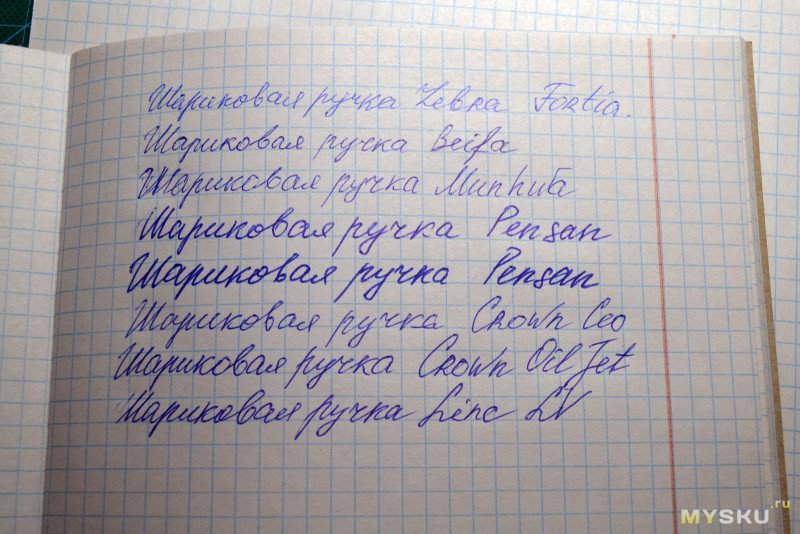 Шариковая ручка Zebra Fortia.
Шариковая ручка Beifa
Шариковая ручка
Шариковая ручка Pensan
Шариковая ручка Pensan
Шариковая ручка Crown Ceo
Шариковая ручка Crown Oil Jet
Шариковая ручка Linc LV
MYSKU.ru